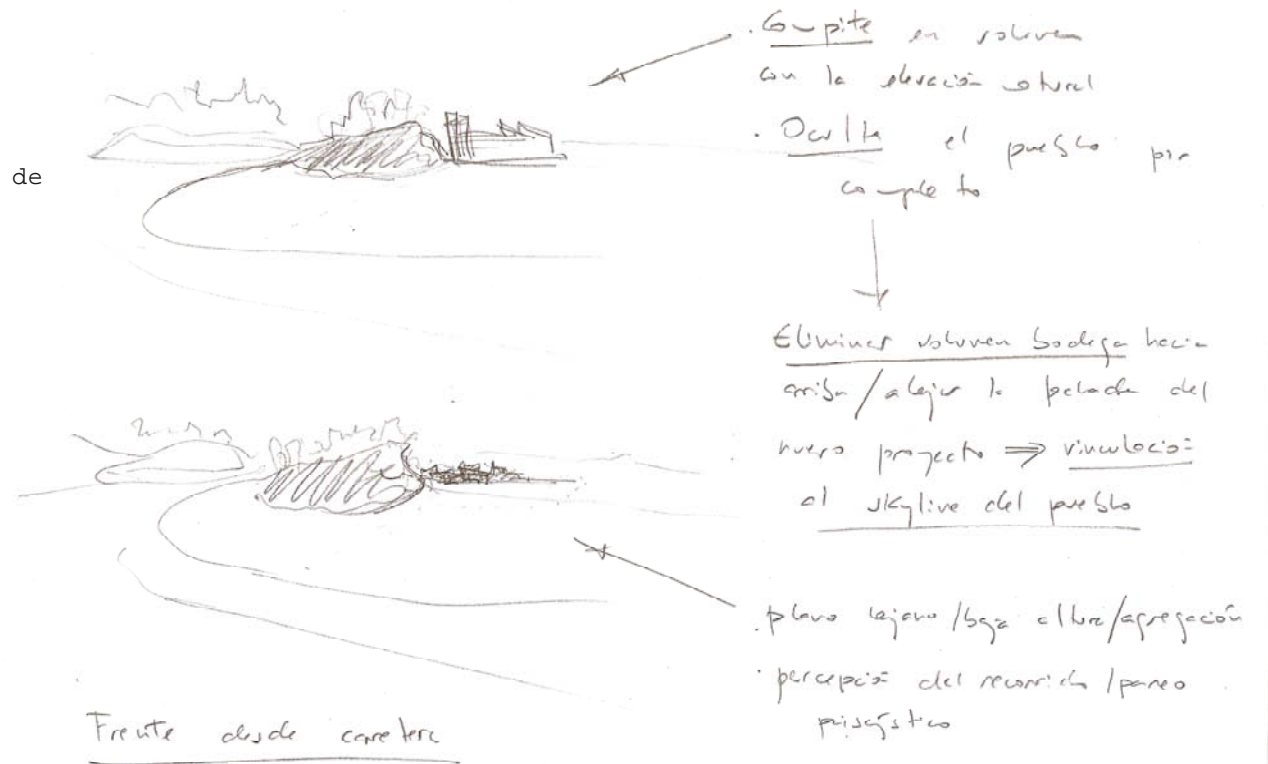 . Compite en volumen
con la elevación natural
. Oculta el pueblo por
completo
de
Eliminar volumen bodega hacia
arriba / alejar la fachada del
nuevo proyecto ⇒ vinculación
al skyline del pueblo
. plano lejano / baja altura / agregación
. percepción del recorrido / paseo
paisajístico
Frente desde carretera